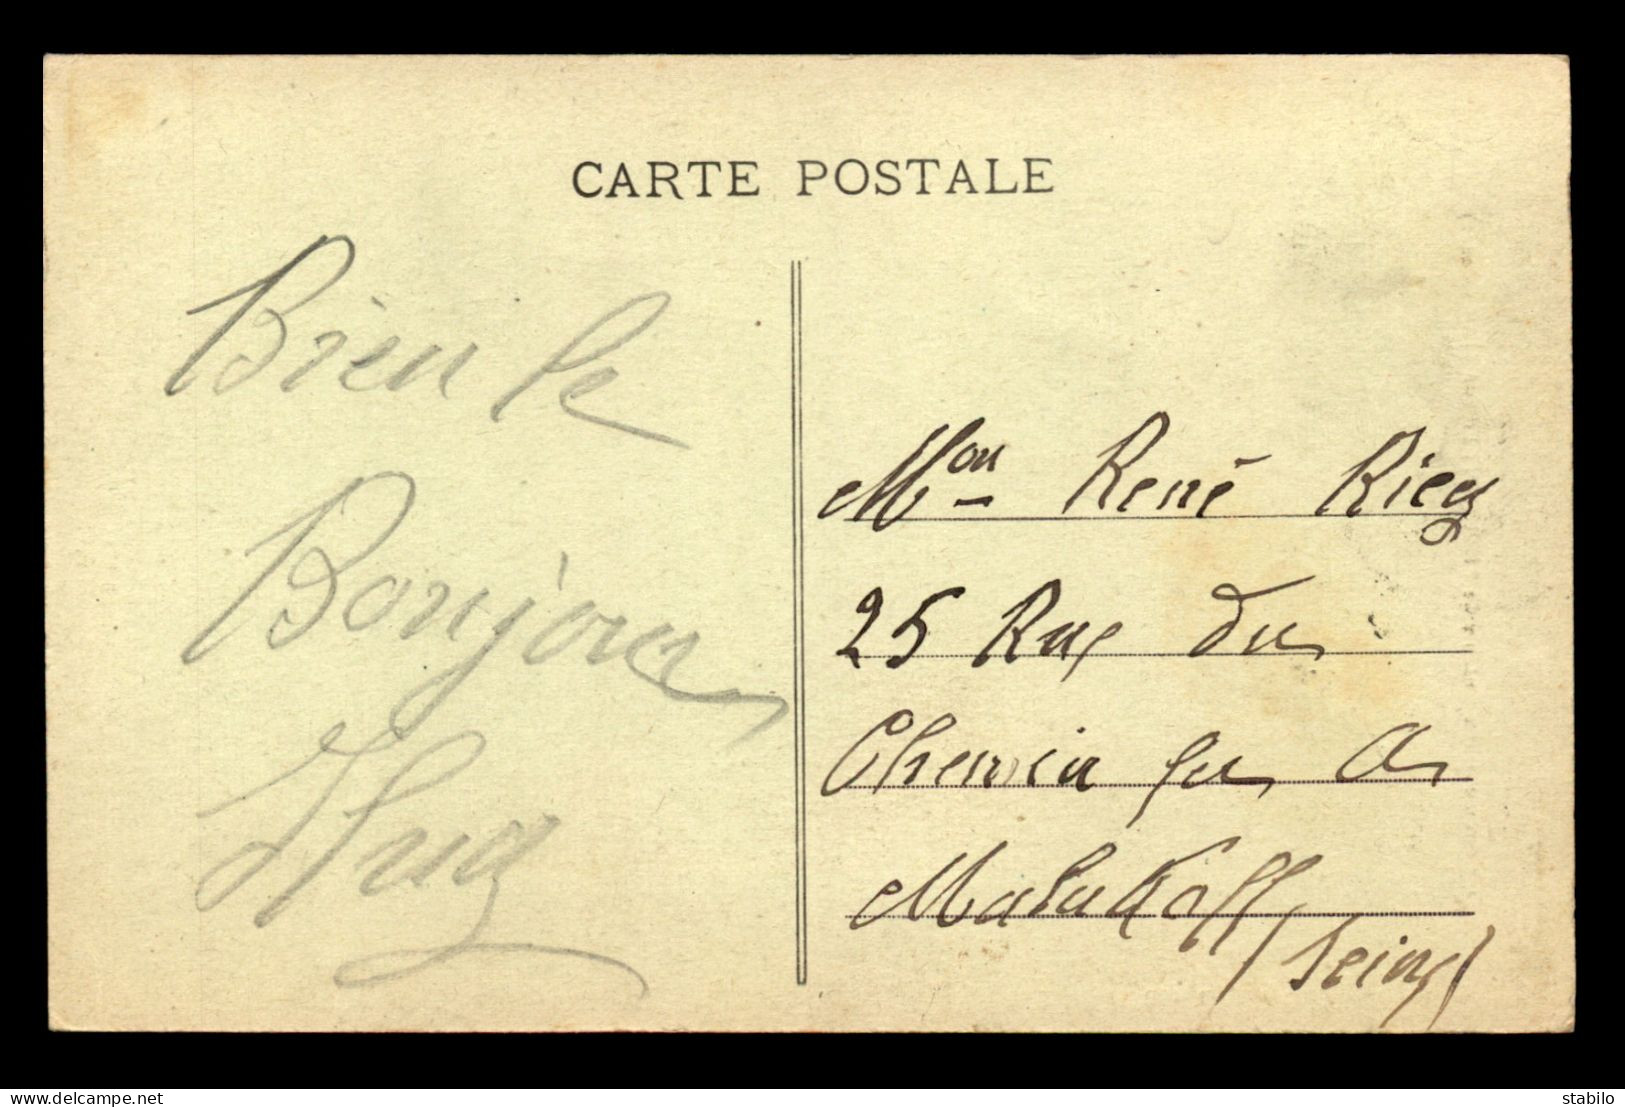 CARTE POSTALE
Bien le
Bonjour
Mon René
25 Rue du
Chemin
Malakoff
(Seine)
delcampe.net
stabilo